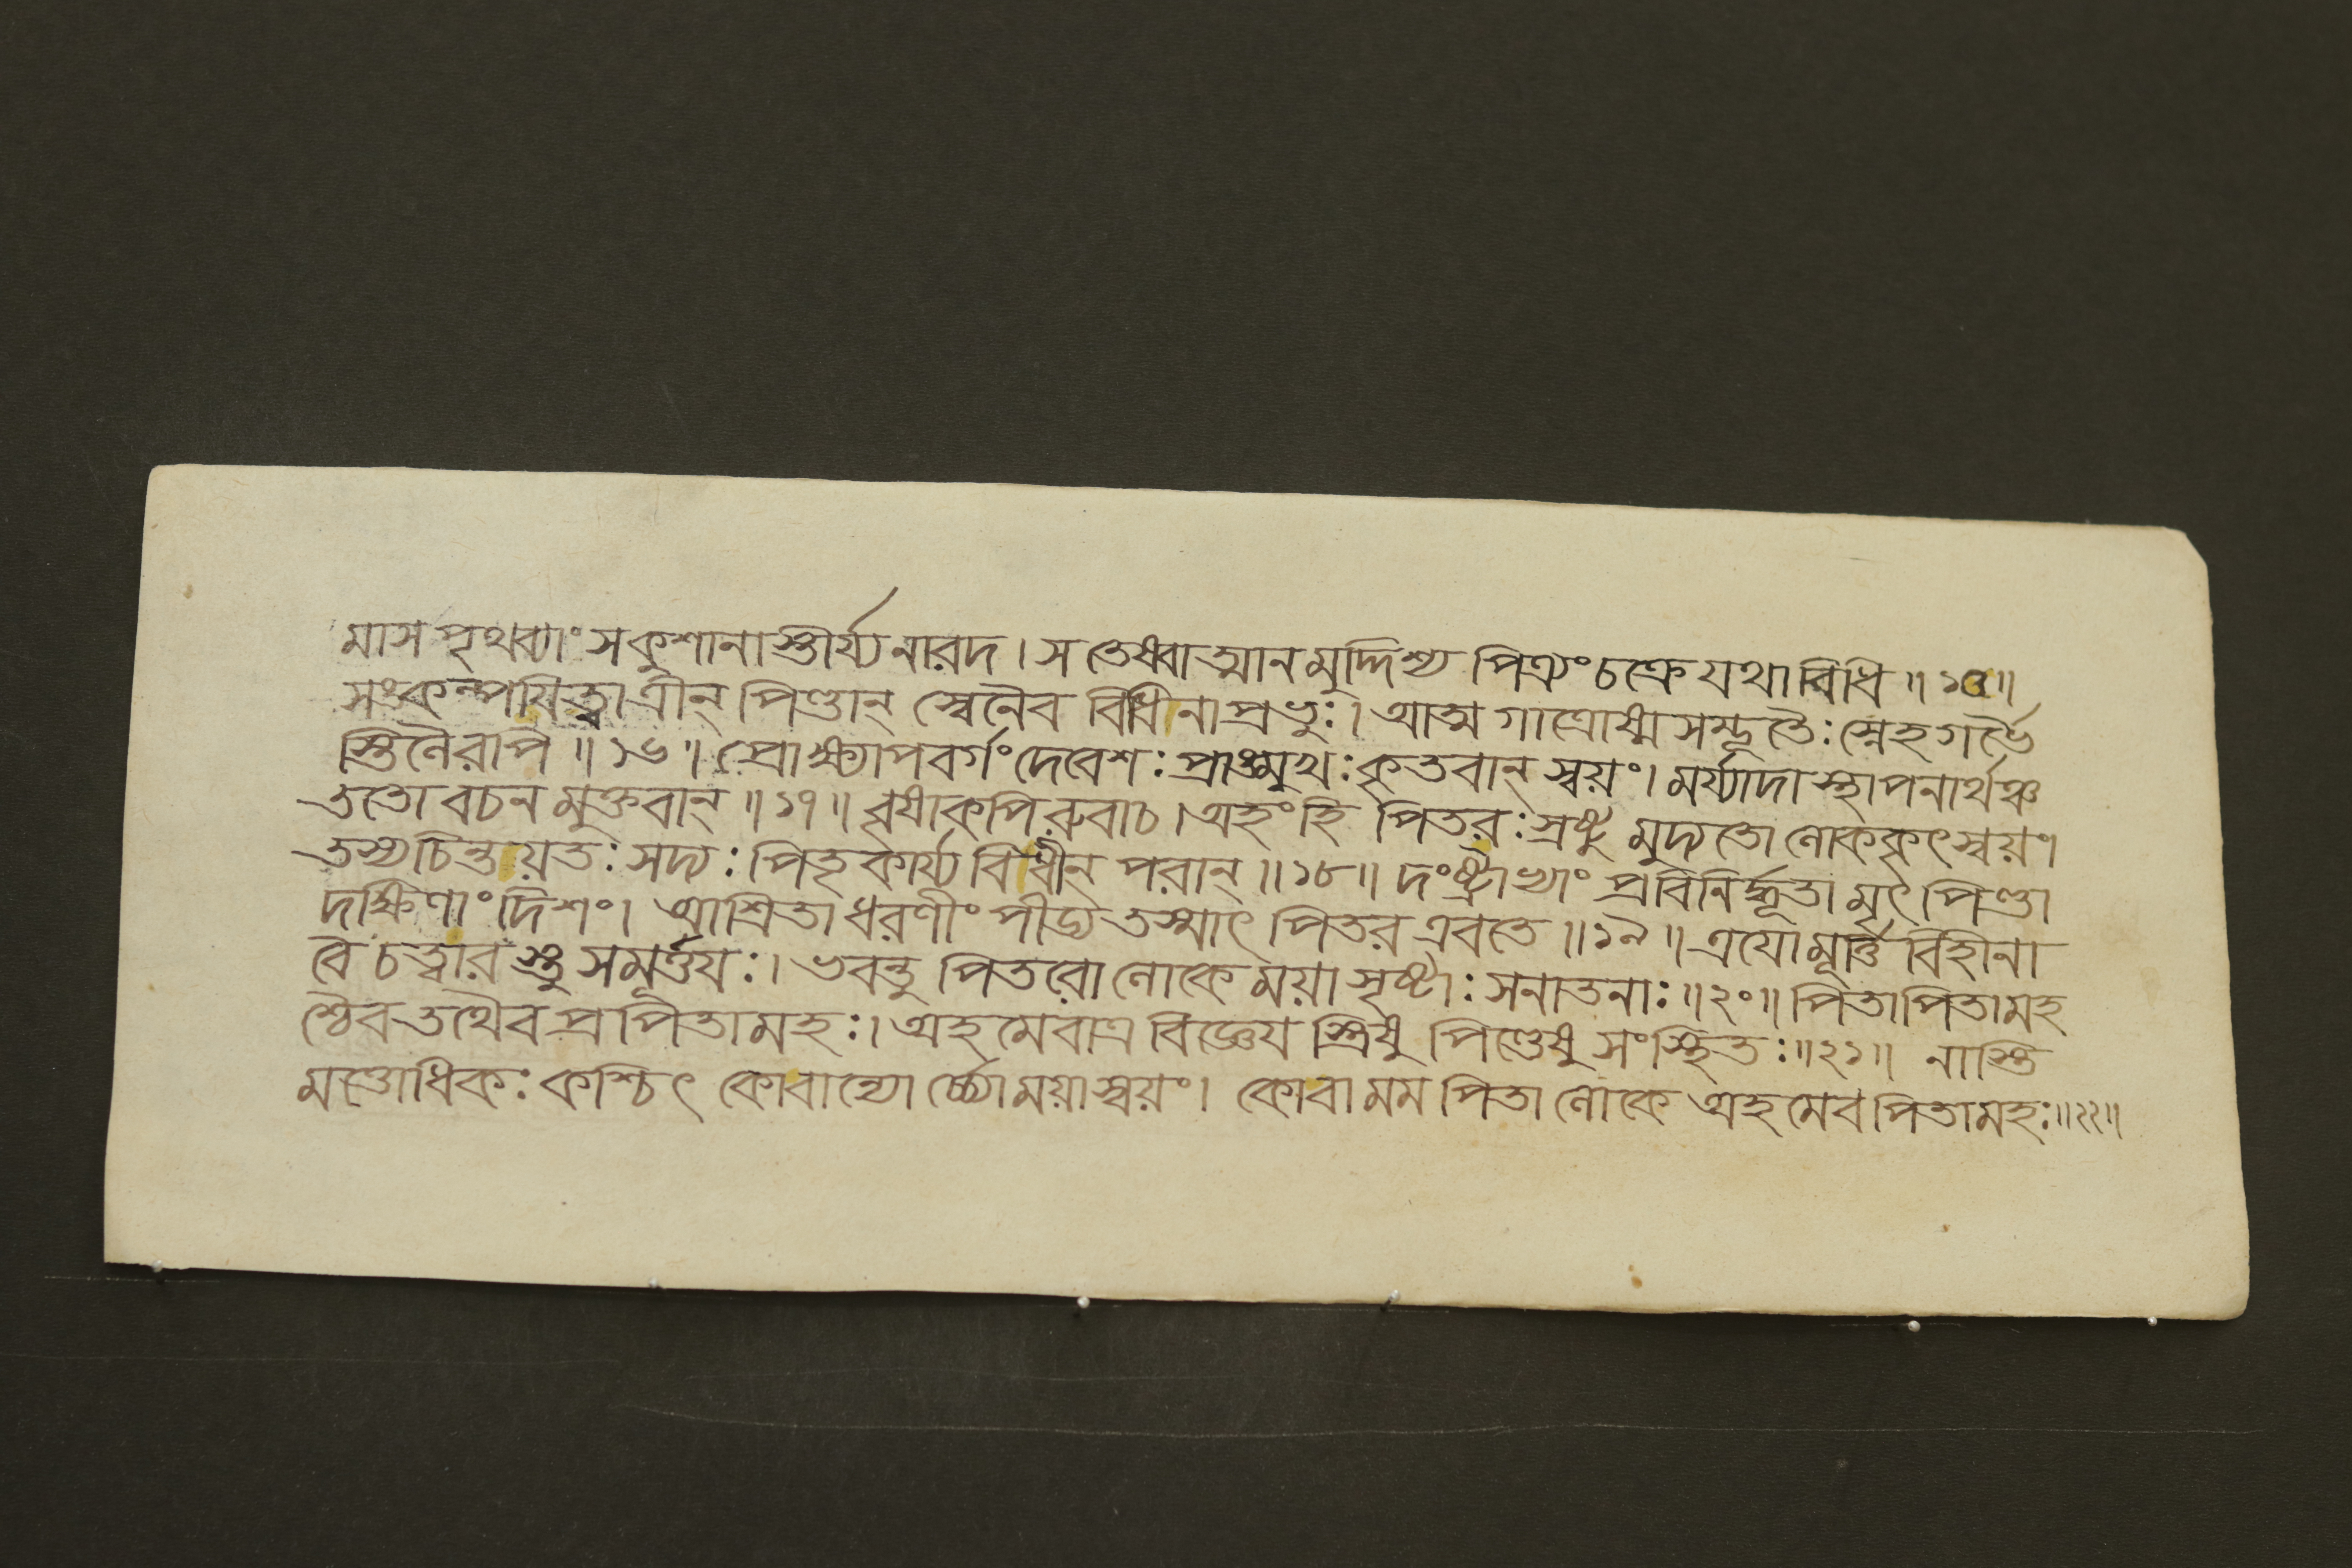 মাস পৃথব্যাং সকুশানাস্তীর্য্য নারদ। স তেষ্বাত্মানমুদ্দিশ্য পিত্র্যং চক্রে যথাবিধি॥১৫॥
সংকল্পয়িত্বা ত্রীন্ পিণ্ডান্ স্বেনৈব বিধীনা প্রভুঃ। আত্ম গাত্রোষ্ম সম্ভূতৈঃ স্নেহ গর্ভৈ
স্তিলৈরপি॥১৬॥ প্রোক্ষ্যাপবর্গং দেবেশঃ প্রাঙ্মুখঃ কৃতবান্ স্বয়ং। মর্য্যাদা স্থাপনার্থঞ্চ
ততো বচন মুক্তবান্॥১৭॥ বৃষাকপিরুবাচ। অহং হি পিতরঃ স্রষ্টু মুদ্যতো লোককৃৎ স্বয়ং।
তস্য চিন্তয়তঃ সদ্যঃ পিতৃকার্য্য বিধীন্ পরান্॥১৮॥ দংষ্ট্রাভ্যাং প্রবিনির্দ্ধূতা মৃৎ পিণ্ডা
দক্ষিণাং দিশং। আশ্রিতা ধরণীং পীড্য তস্মাৎ পিতর এবতে॥১৯॥ এযো মূর্ত্তি বিহীনা
বৈ চত্বার স্তু সমূর্ত্তয়ঃ। ভবন্তু পিতরো লোকে ময়া সৃষ্টাঃ সনাতনাঃ॥২০॥ পিতা পিতামহ
শ্চৈব তথৈব প্রপিতামহঃ। অহমেবাত্র বিজ্ঞেয় স্ত্রিষু পিণ্ডেষু সংস্থিতঃ॥২১॥ নাস্তি
মত্তোধিকঃ কশ্চিৎ কোবান্যোর্চ্চ্যো ময়া স্বয়ং। কোবা মম পিতা লোকে অহমেব পিতামহঃ॥২২॥